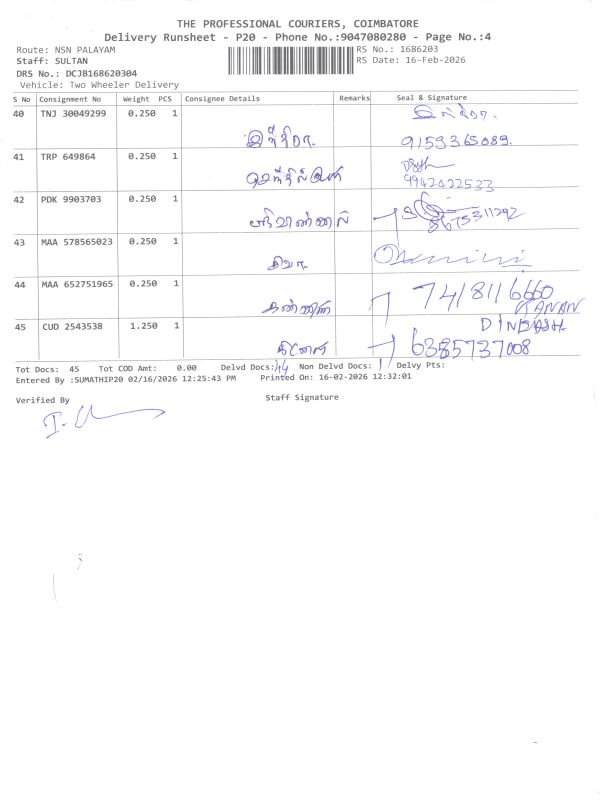 THE PROFESSIONAL COURIERS, COIMBATORE
Delivery Runsheet - P20 - Phone No.:9047080280 - Page No.:4
Route: NSN PALAYAM RS No.: 1686203
Staff: SULTAN RS Date: 16-Feb-2026
DRS No.: DCJB168620304
Vehicle: Two Wheeler Delivery
S No Consignment No Weight PCS Consignee Details Remarks Seal & Signature
40 TNJ 30049299 0.250 1
இந்திரா 9159365089.
41 TRP 649864 0.250 1
9942422533
42 PDK 9903703 0.250 1
8675311292
43 MAA 578565023 0.250 1
சிவா
44 MAA 652751965 0.250 1
கண்ணன் 7418116660
KANAN
45 CUD 2543538 1.250 1
தினேஷ் 6385737008
Tot Docs: 45 Tot COD Amt: 0.00 Delvd Docs: 44 Non Delvd Docs: 1 Delvy Pts:
Entered By :SUMATHIP20 02/16/2026 12:25:43 PM Printed On: 16-02-2026 12:32:01
Verified By Staff Signature